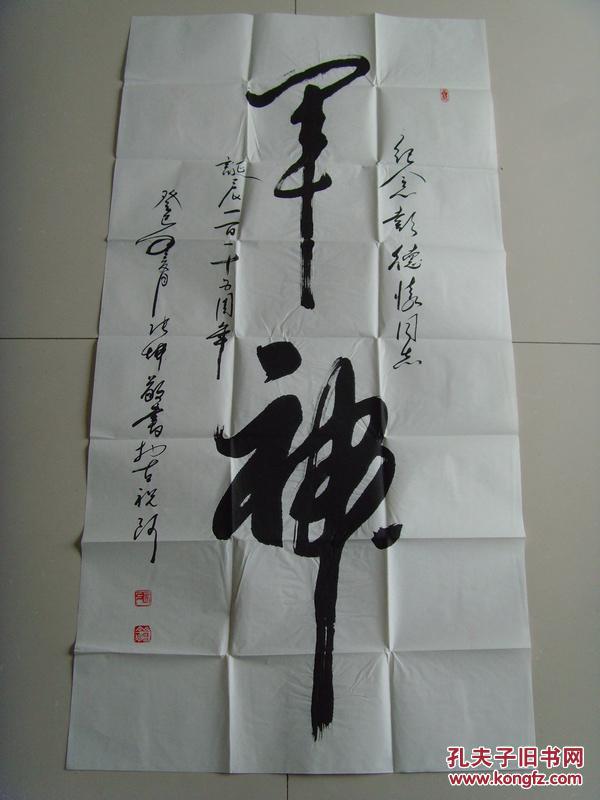 纪念彭德怀同志
军神
诞辰一百一十五周年
癸巳
张坤敬书于古祝阿
孔夫子旧书网
www.kongfz.com